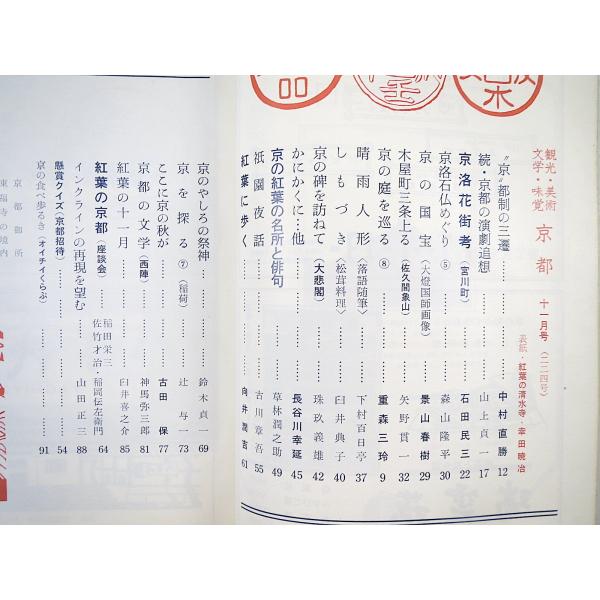 観光・美術
文学・味覚
京都
十一月号
(二二四号)
表紙・紅葉の清水寺・幸田暁冶
“京”都制の三遷……中村直勝 12
続・京都の演劇追想……山上貞一 17
京洛花街考(宮川町)……石田民三 22
京洛石仏めぐり⑤……森山隆平 30
京の国宝〈大燈国師画像〉……景山春樹 29
木屋町三条上る(佐久間象山)……矢野貫一 32
京の庭を巡る⑧……重森三玲 9
晴雨人形〈落語随筆〉……下村百日亭 37
しもづき〈松茸料理〉……臼井典子 40
京の碑を訪ねて(大悲閣)……珠玖義雄 42
かにかくに…他……長谷川幸延 45
京の紅葉の名所と俳句……草林潤之助 49
祇園夜話……古川章吾 55
紅葉に歩く……向井潤吉 61
京のやしろの祭神……鈴木貞一 69
京を探る⑦〈稲荷〉……辻与一 73
ここに京の秋が……古田保 77
京都の文学(西陣)……神馬弥三郎 81
紅葉の十一月……臼井喜之介 85
紅葉の京都(座談会)……稲田栄三
佐竹才治・稲岡伝左衛門 64
インクラインの再現を望む……山田正三 88
懸賞クイズ(京都招待)……54
京の食べ歩るき(オイチイくらぶ)……91
京都御所
東福寺の境内